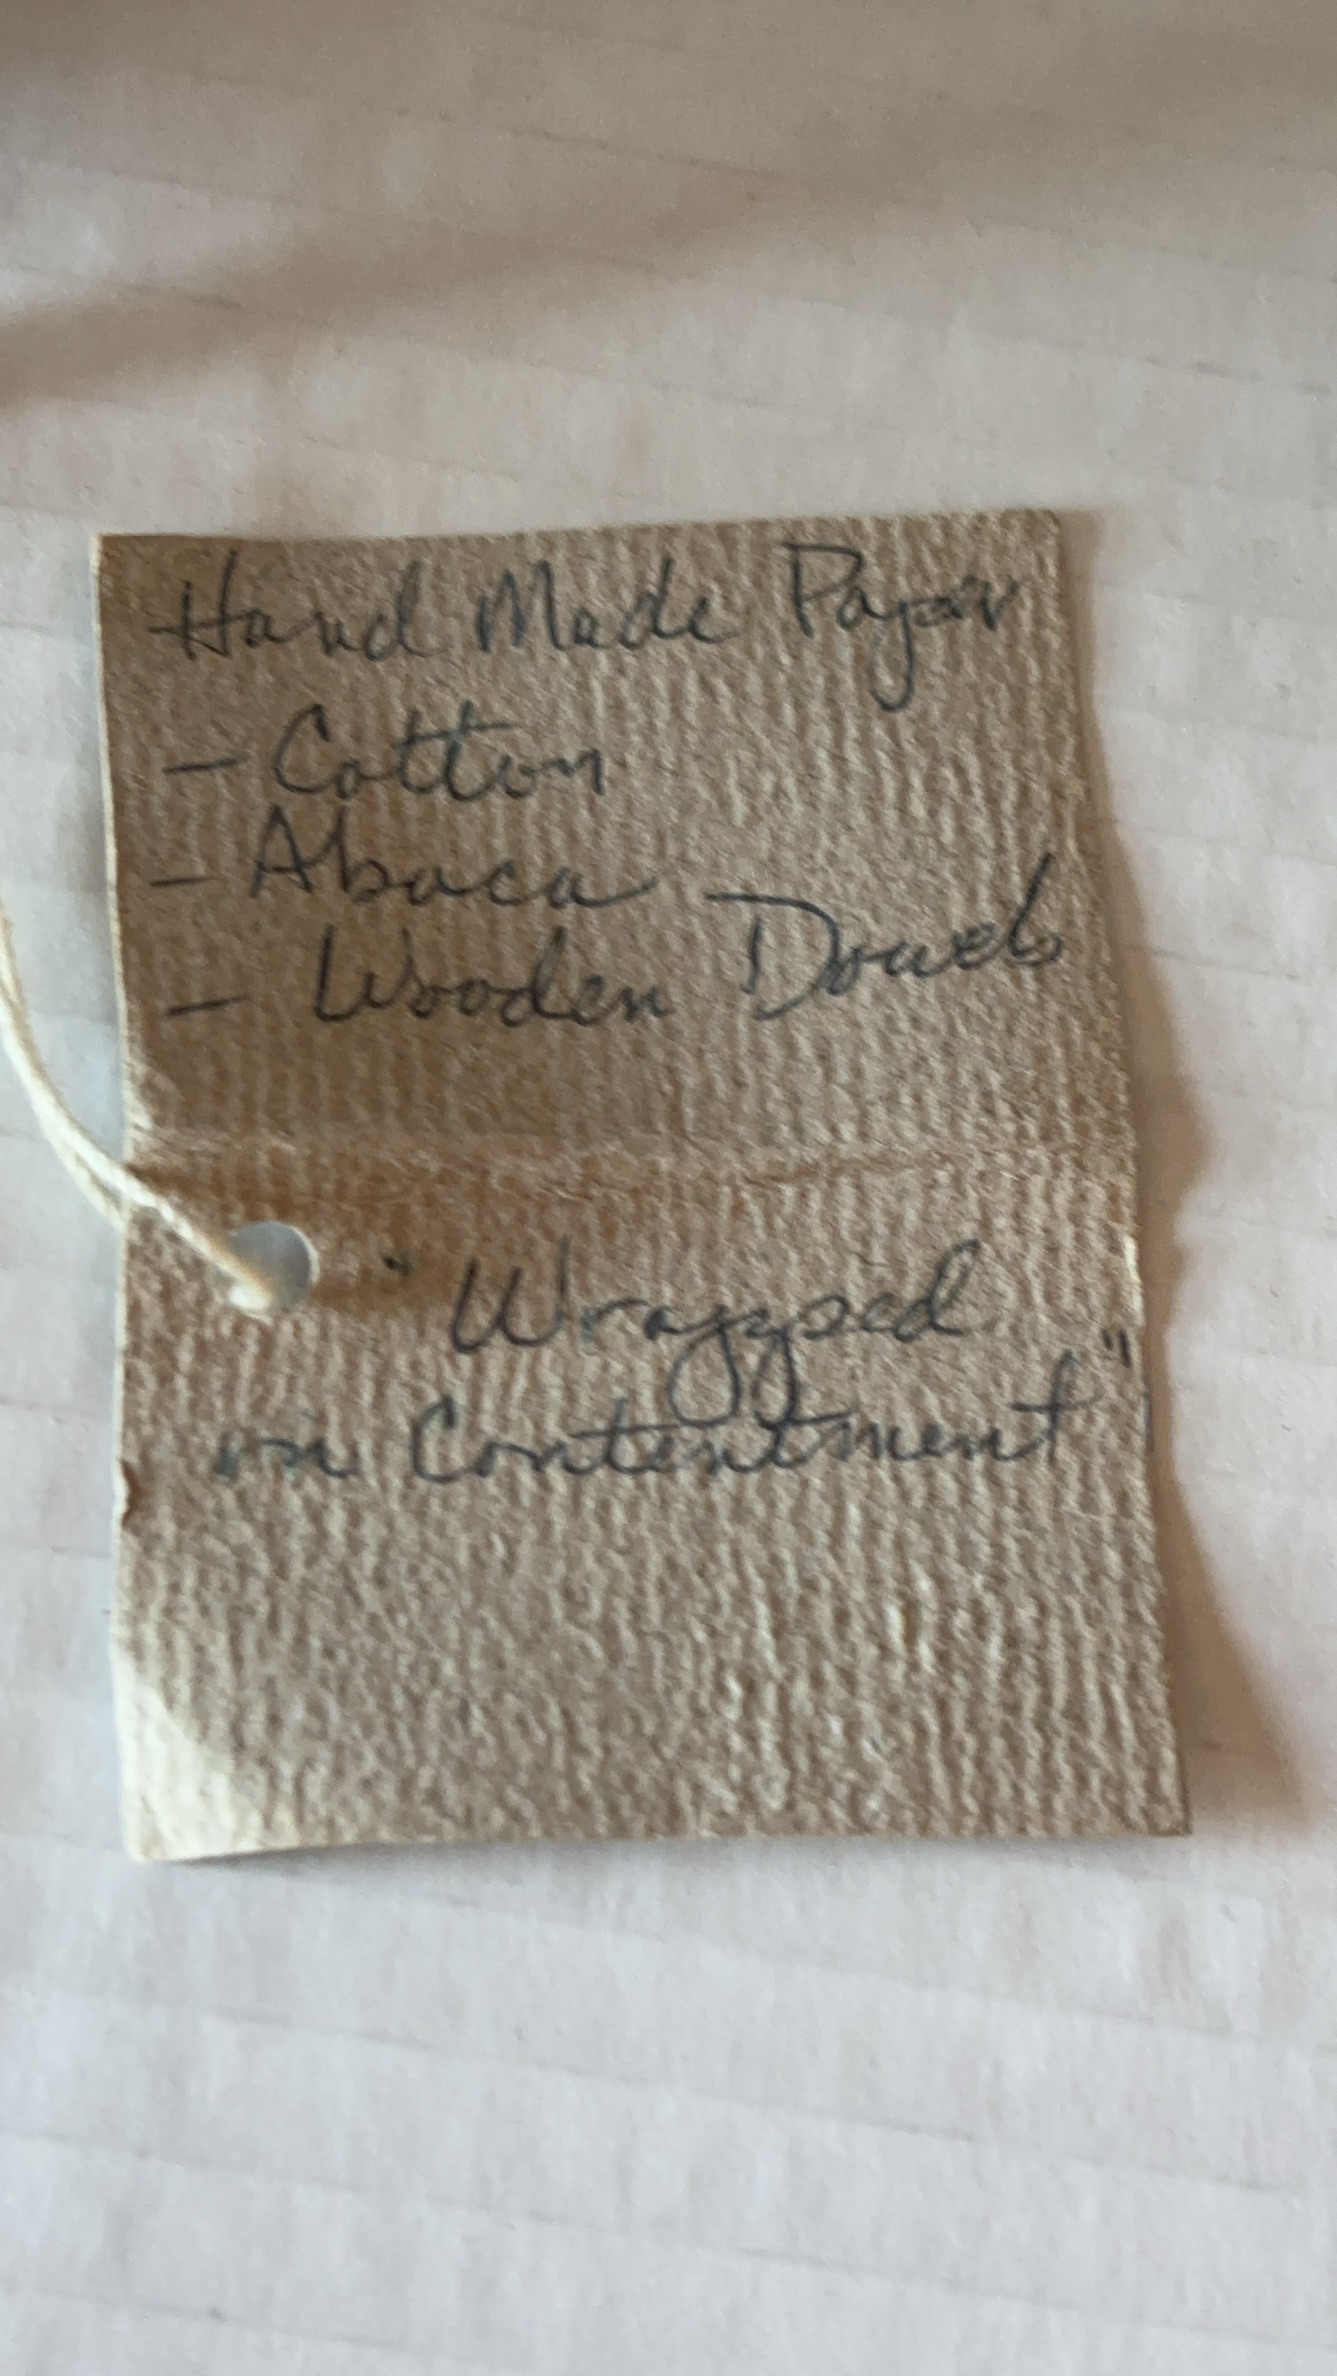 Hand Made Paper
- Cotton
- Abaca
- Wooden Dowels
"Wrapped
in Contentment"